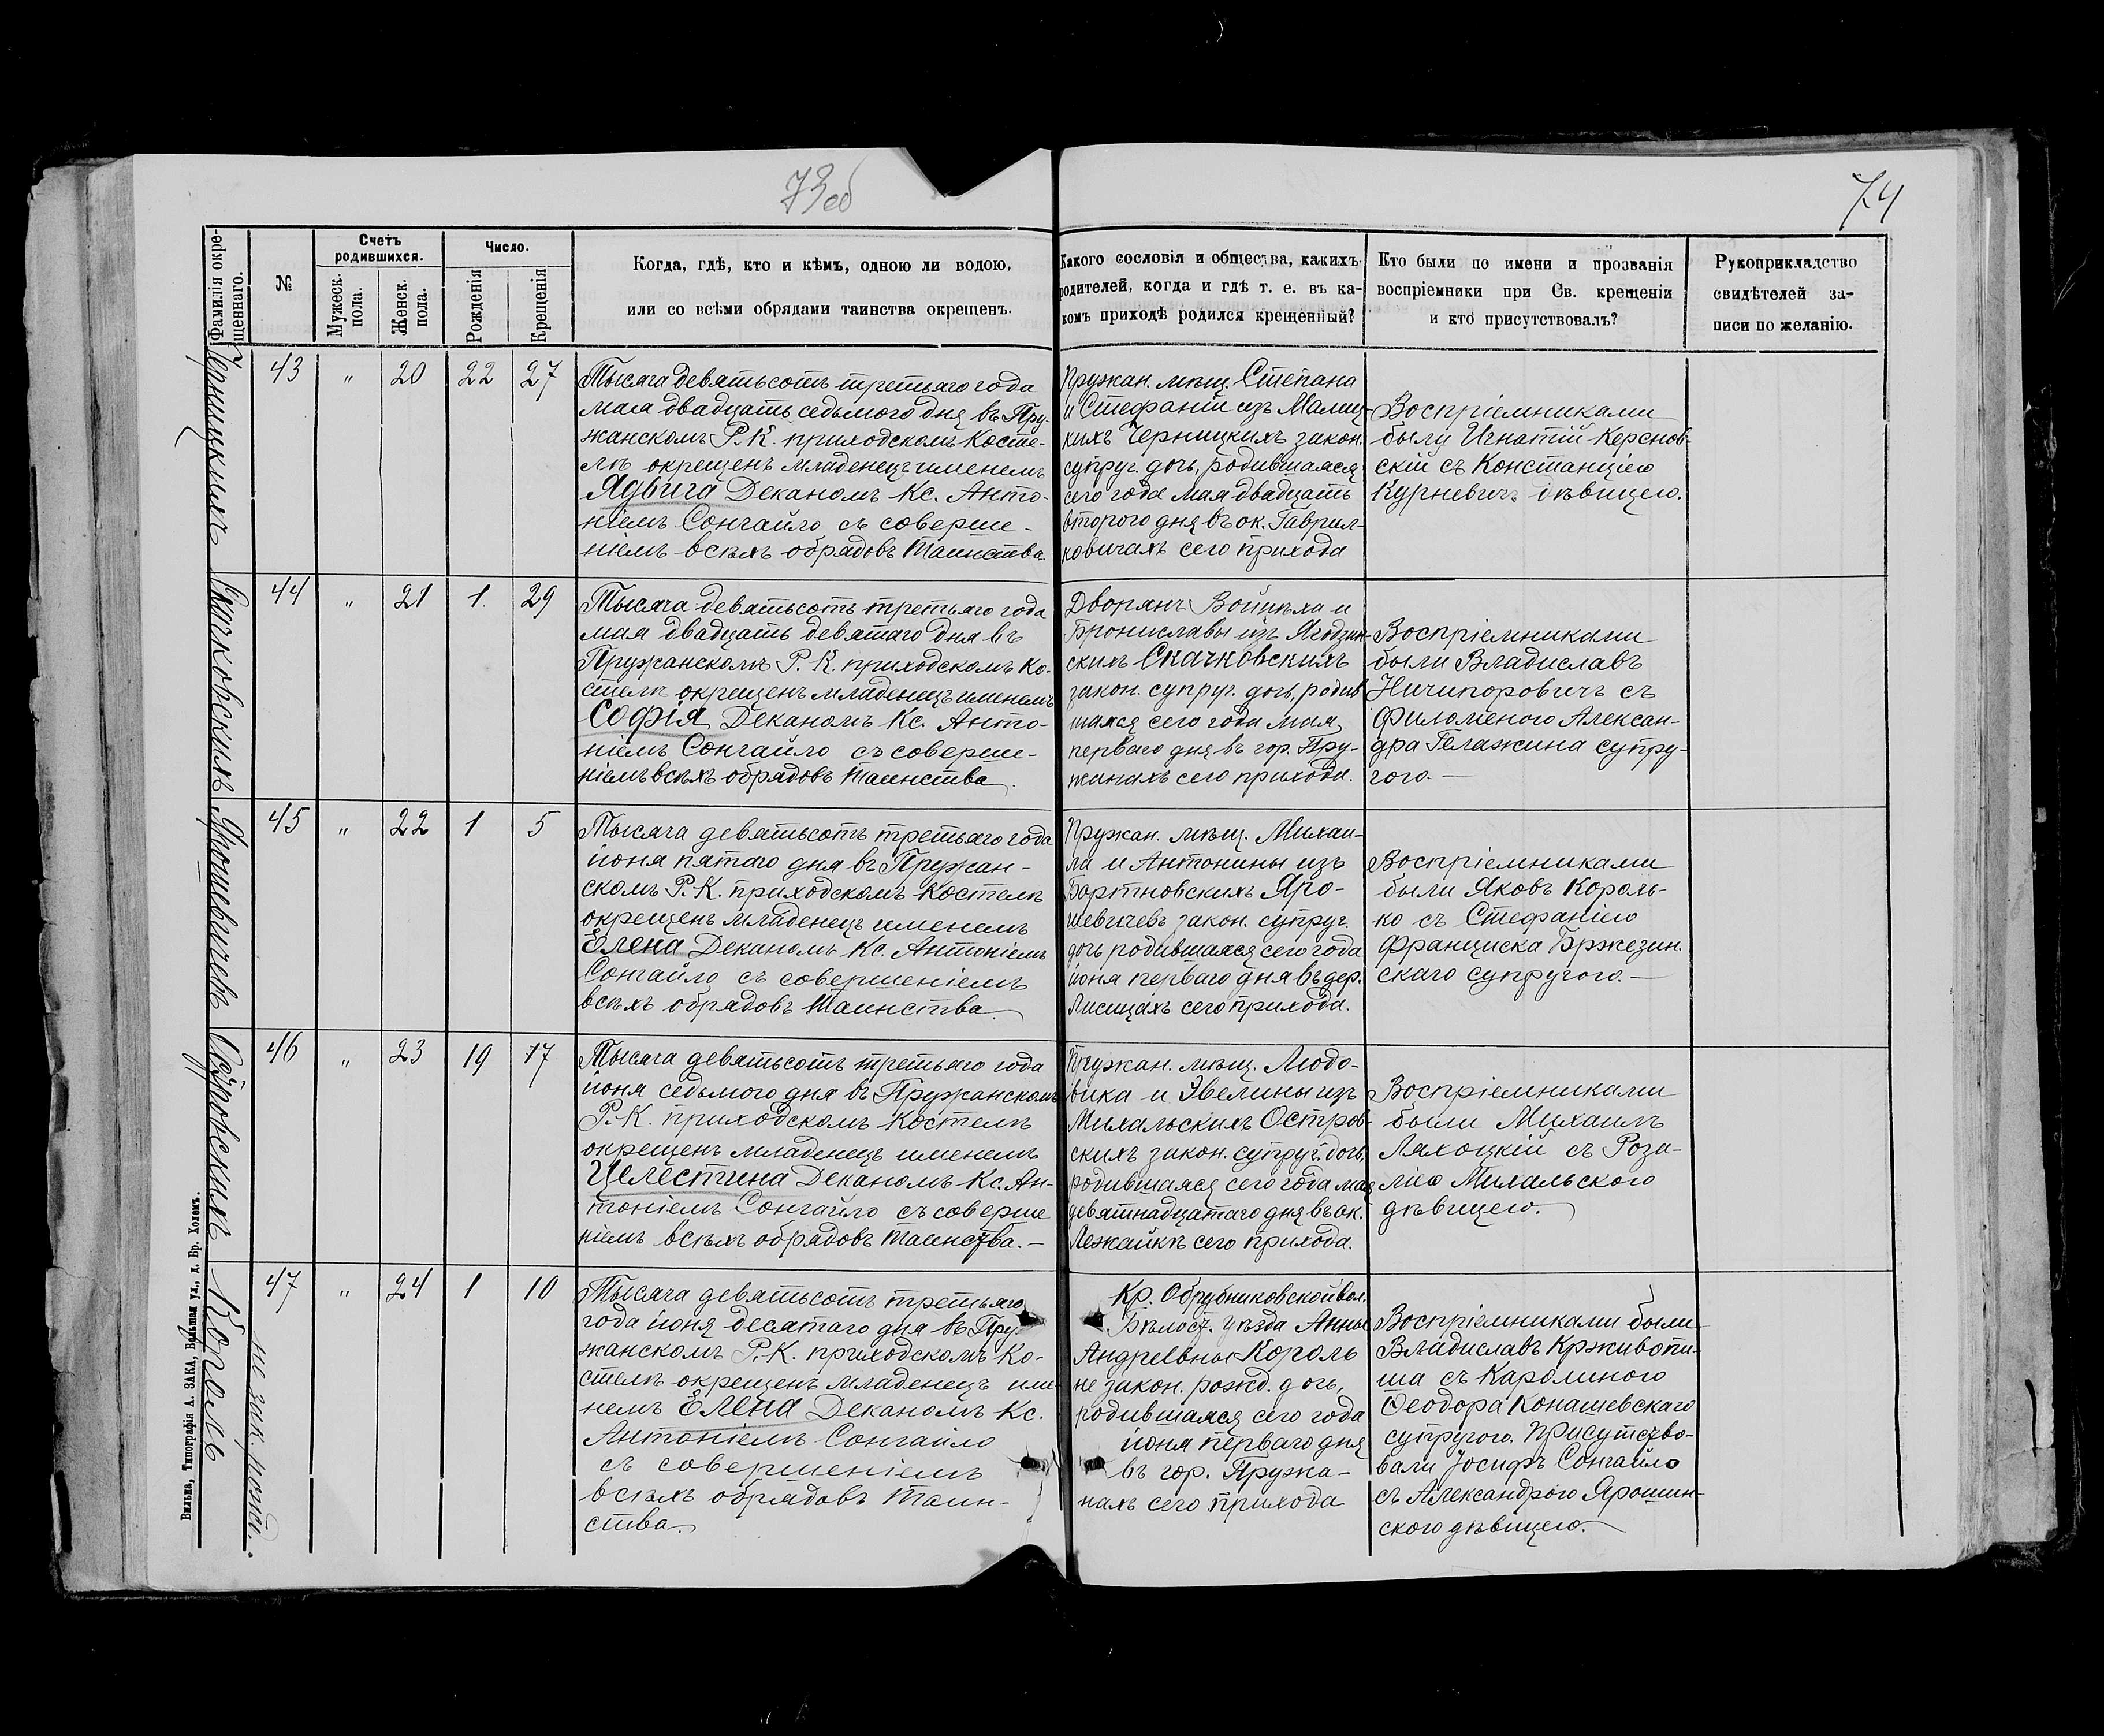 73 об
74
Фамилія окре-
щеннаго.
№
Счетъ
родившихся.
Мужеск.
пола.
Женск.
пола.
Число.
Рожденія
Крещенія
Когда, гдѣ, кто и кѣмъ, одною ли водою,
или со всѣми обрядами таинства окрещенъ.
Какого сословія и общества, какихъ
родителей, когда и гдѣ т. е. въ ка-
комъ приходѣ родился крещенный?
Кто были по имени и прозванія
воспріемники при Св. крещеніи
и кто присутствовалъ?
Рукоприкладство
свидѣтелей за-
писи по желанію.
Черницкихъ
43 " 20 22 27
Тысяча девятьсотъ третьяго года
мая двадцать седьмого дня въ Пру-
жанскомъ Р. К. приходскомъ Косте-
лѣ окрещенъ младенецъ именемъ
Ядвига Деканомъ Кс. Анто-
ніемъ Сонгайло съ соверше-
ніемъ всѣхъ обрядовъ Таинства
Пружан. мѣщ. Степана
и Стефаніи изъ Малиц-
кихъ Черницкихъ закон.
супруг. дочь, родившаяся
сего года мая двадцать
второго дня въ ок. Гаврил-
ковичахъ сего прихода
Воспріемниками
были Игнатій Керснов-
скій съ Констанціею
Курневичъ дѣвицею.
Скачковскихъ
44 " 21 1. 29
Тысяча девятьсотъ третьяго года
мая двадцать девятаго дня въ
Пружанскомъ Р. К. приходскомъ Ко-
стелѣ окрещенъ младенецъ именемъ
Софія Деканомъ Кс. Анто-
ніемъ Сонгайло съ соверше-
ніемъ всѣхъ обрядовъ Таинства.
Дворянъ Войцѣха и
Брониславы изъ Ягодзин-
скихъ Скачковскихъ
закон. супруг. дочь, родив
шаяся сего года мая
перваго дня въ гор. Пру-
жанахъ сего прихода.
Воспріемниками
были Владиславъ
Ничипоровичъ съ
Филоменою Алексан-
дра Гелажина супру-
гою. —
Ярошевичевъ
45 " 22 1 5
Тысяча девятьсотъ третьяго года
іюня пятаго дня въ Пружан-
скомъ Р. К. приходскомъ Костелѣ
окрещенъ младенецъ именемъ
Елена Деканомъ Кс. Антоніемъ
Сонгайло съ совершеніемъ
всѣхъ обрядовъ Таинства.
Пружан. мѣщ. Михаи-
ла и Антонины изъ
Бортновскихъ Яро-
шевичевъ закон. супруг.
дочь родившаяся сего года
іюня перваго дня въ дер.
Лисицахъ сего прихода.
Воспріемниками
были Яковъ Король-
ко съ Стефаніею
Франциска Бржезин.
скаго супругою. —
Островскихъ
46 " 23 19 17
Тысяча девятьсотъ третьяго года
іюня седьмого дня въ Пружанскомъ
Р. К. приходскомъ Костелѣ
окрещенъ младенецъ именемъ
Целестина Деканомъ Кс. Ан-
тоніемъ Сонгайло съ соверше
ніемъ всѣхъ обрядовъ Таинства. —
Пружан. мѣщ. Людо-
вика и Эвелины изъ
Михальскихъ Остров-
скихъ закон. супруг. дочь,
родившаяся сего года мая
девятнадцатаго дня въ ок.
Лежайкѣ сего прихода.
Воспріемниками
были Михаилъ
Ляхоцкій съ Роза-
ліею Михальскою
дѣвицею.
Король
не зак. рожд.
47 " 24 1 10
Тысяча девятьсотъ третьяго
года іюня десятаго дня въ Пру-
жанскомъ Р. К. приходскомъ Ко-
стелѣ окрещенъ младенецъ име-
немъ Елена Деканомъ Кс.
Антоніемъ Сонгайло
съ совершеніемъ
всѣхъ обрядовъ Таин-
ства.
Кр. Обрубниковской вол.
Бѣлост. уѣзда Анны
Андреевны Король
не закон. рожд. дочь,
родившаяся сего года
іюня перваго дня
въ гор. Пружа-
нахъ сего прихода
Воспріемниками были
Владиславъ Крживопи-
ша съ Каролиною
Ѳеодора Конашевскаго
супругою. Присутство-
вали Іосифъ Сонгайло
съ Александрою Ярошин-
скою дѣвицею.
Вильна, Типографія А. ЗАКА, Большая ул., д. Бр. Холемъ.